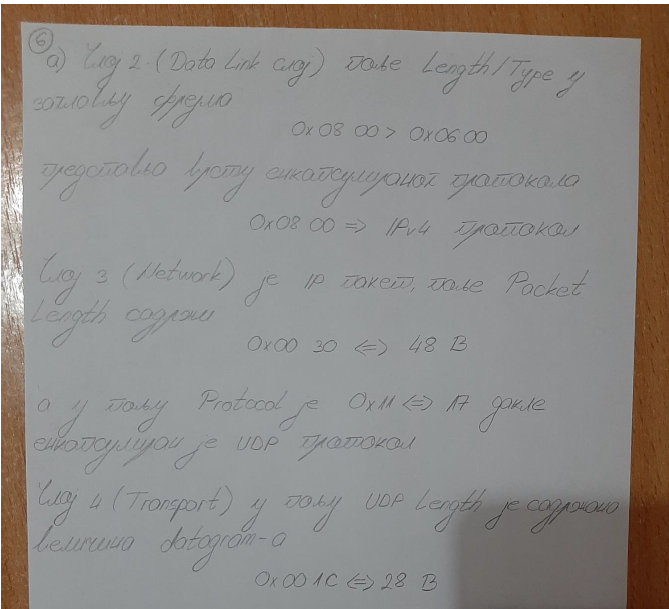 6
а) Слој 2 (Data Link слој) поље Length/Type у
заглављу фрејма
0x08 00 > 0x06 00
представља врсту енкапсулираног протокола
0x08 00 => IPv4 протокол
Слој 3 (Network) је IP пакет, поље Packet
Length садржи
0x00 30 <=> 48 B
а у пољу Protocol је 0x11 <=> 17 дакле
енкапсулиран је UDP протокол
Слој 4 (Transport) у пољу UDP Length је садржана
величина datagram-а
0x00 1C <=> 28 B